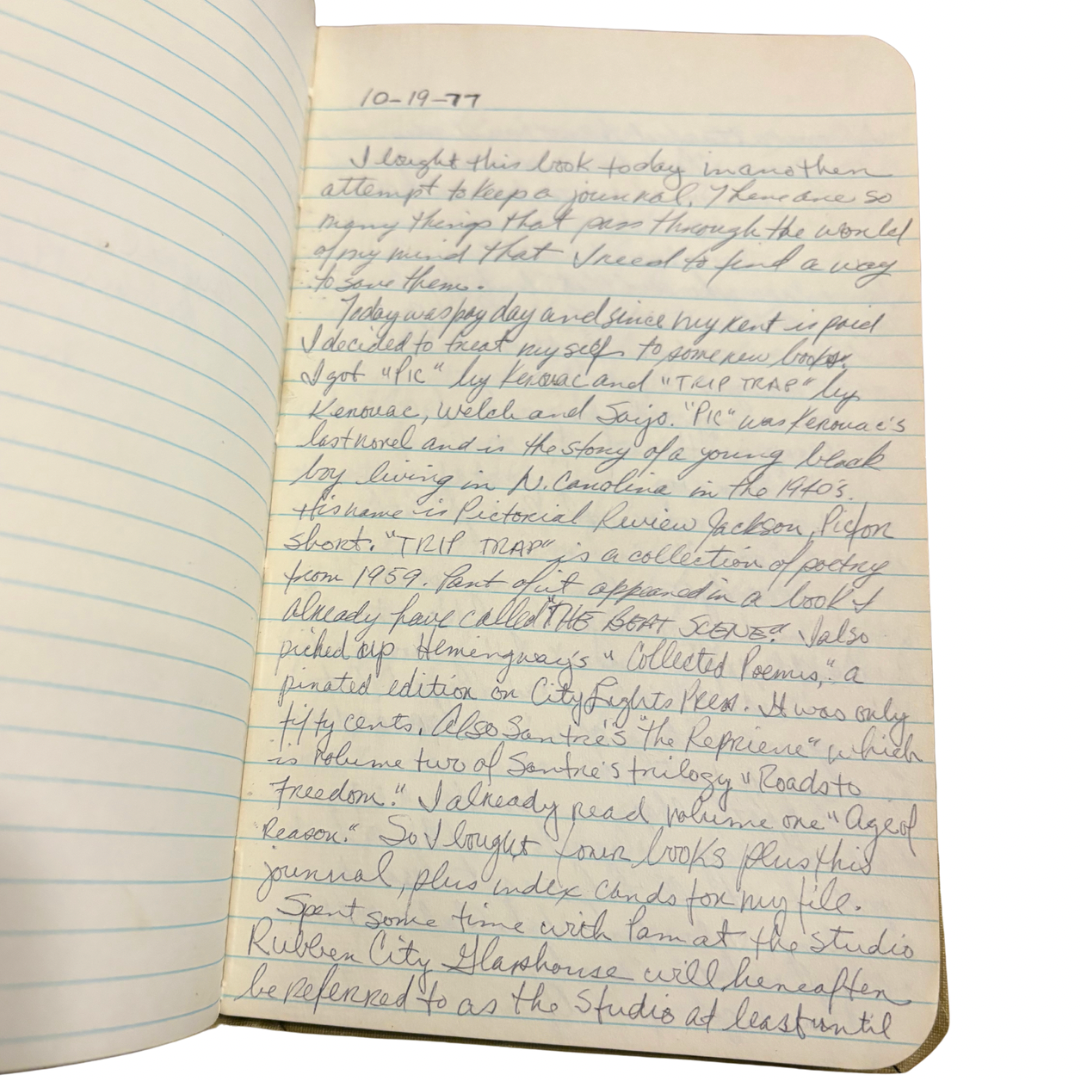 10-19-77
I bought this book today in another
attempt to keep a journal. There are so
many things that pass through the world
of my mind that I need to find a way
to save them.
Today was pay day and since my rent is paid
I decided to treat myself to some new books.
I got "PIC" by Kerouac and "TRIP TRAP" by
Kerouac, Welch and Saijo. "PIC" was Kerouac's
last novel and is the story of a young black
boy living in N. Carolina in the 1940's.
His name is Pictorial Review Jackson, Pic for
short. "TRIP TRAP" is a collection of poetry
from 1959. Part of it appeared in a book I
already have called "THE BEAT SCENE." I also
picked up Hemingway's "Collected Poems," a
pirated edition on City Lights Press. It was only
fifty cents. Also Sartre's "The Reprieve" which
is volume two of Sartre's trilogy "Roads to
Freedom." I already read volume one "Age of
Reason." So I bought four books plus this
journal, plus index cards for my file.
Spent some time with Pam at the studio
Rubber City Glasshouse will hereafter
be referred to as the Studio at least until